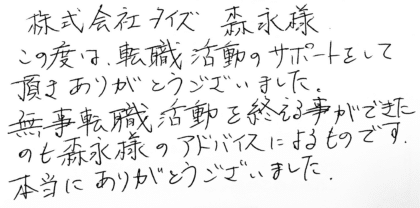 株式会社タイズ 森永様
この度は、転職活動のサポートをして
頂きありがとうございました。
無事転職活動を終える事ができた
のも森永様のアドバイスによるものです.
本当にありがとうございました.